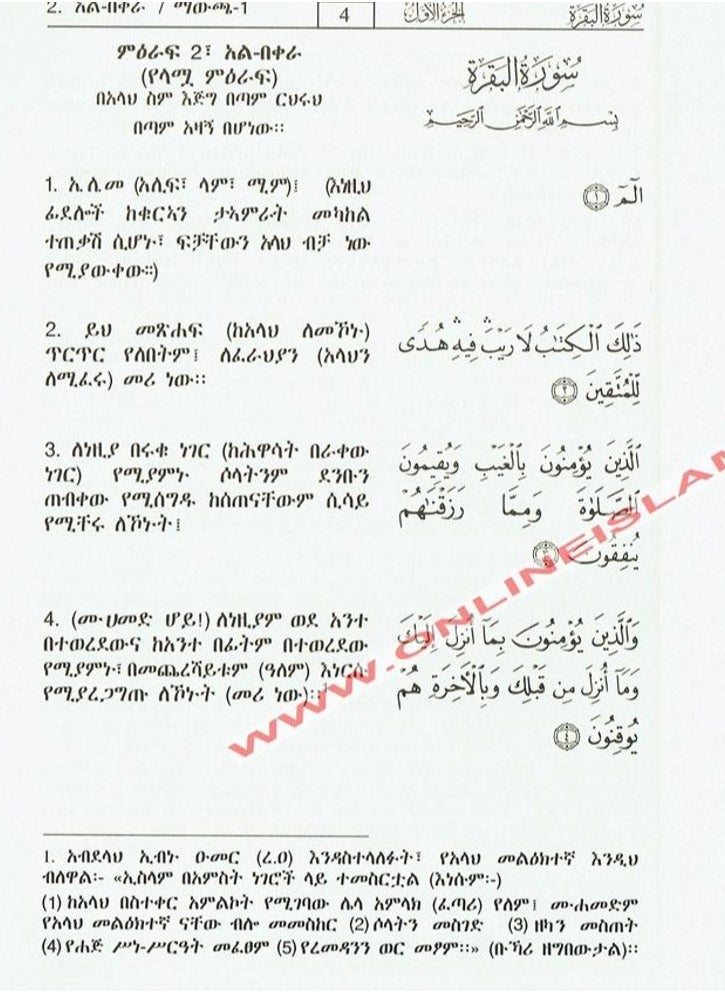 2. አል-በቀራ / ማውጫ-1
4
الجزء الأول
سورة البقرة
ምዕራፍ 2፣ አል-በቀራ
(የላሟ ምዕራፍ)
በአላህ ስም እጅግ በጣም ርህሩህ
በጣም አዛኝ በሆነው።
سُورَةُ الْبَقَرَةِ
بِسْمِ اللَّهِ الرَّحْمَٰنِ الرَّحِيمِ
1. ኤ.ለ.መ (አሊፍ፣ ላም፣ ሚም)፤ (እነዚህ
ፊደሎች ከቁርኣን ታኣምራት መካከል
ተጠቃሽ ሲሆኑ፣ ፍቻቸውን አላህ ብቻ ነው
የሚያውቀው።)
الٓمٓ ١
2. ይህ መጽሐፍ (ከአላህ ለመኾኑ)
ጥርጥር የለበትም፤ ለፈራህያን (አላህን
ለሚፈሩ) መሪ ነው።
ذَٰلِكَ الْكِتَابُ لَا رَيْبَ ۛ فِيهِ ۛ هُدًى
لِّلْمُتَّقِينَ ٢
3. ለነዚያ በሩቁ ነገር (ከሕዋሳት በራቀው
ነገር) የሚያምኑ ሶላትንም ደንቡን
ጠብቀው የሚሰግዱ ከሰጠናቸውም ሲሳይ
የሚቸሩ ለኾኑት፤
الَّذِينَ يُؤْمِنُونَ بِالْغَيْبِ وَيُقِيمُونَ
الصَّلَوٰةَ وَمِمَّا رَزَقْنَٰهُمْ
يُنفِقُونَ ٣
4. (ሙሀመድ ሆይ!) ለነዚያም ወደ አንተ
በተወረደውና ከአንተ በፊትም በተወረደው
የሚያምኑ፣ በመጨረሻይቱም (ዓለም) እነርሱ
የሚያረጋግጡ ለኾኑት (መሪ ነው)።¹
وَالَّذِينَ يُؤْمِنُونَ بِمَا أُنزِلَ إِلَيْكَ
وَمَا أُنزِلَ مِن قَبْلِكَ وَبِالْآخِرَةِ هُمْ
يُوقِنُونَ ٤
WWW.ONLINEISLAM
1. አብደላህ ኢብኑ ዑመር (ረ.ዐ) እንዳስተላለፉት፣ የአላህ መልዕክተኛ እንዲህ
ብለዋል፦ «ኢስላም በአምስት ነገሮች ላይ ተመስርቷል (እነሱም፦)
(1) ከአላህ በስተቀር አምልኮት የሚገባው ሌላ አምላክ (ፈጣሪ) የለም፤ ሙሐመድም
የአላህ መልዕክተኛ ናቸው ብሎ መመስከር (2) ሶላትን መስገድ (3) ዘካን መስጠት
(4) የሐጅ ሥነ-ሥርዓት መፈፀም (5) የረመዳንን ወር መፆም።» (ቡኻሪ ዘግበውታል)።